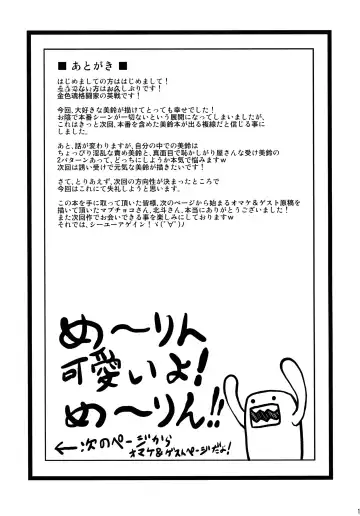 ■ あとがき ■
はじめましての方ははじめまして!
そうでない方はお久しぶりです!
金色璃格闘家の英戦です!
今回、大好きな美鈴が描けてとっても幸せでした!
お陰で本番シーンが一切ないという展開になってしまいましたが、
これはきっと次回、本番を含めた美鈴本が出る複線だと信じる事に
しました。
あと、話が変わりますが、自分の中での美鈴は
ちょっぴり淫乱な責め美鈴と、真面目で恥かしがり屋さんな受け美鈴の
2パターンあって、どっちにしようか本気で悩みますw
次回は誘い受けで元気な美鈴が描きたいです!
さて、とりあえず、次回の方向性が決まったところで
今回はこれにて失礼しようと思います。
この本を手に取って頂いた皆様、次のページから始まるオマケ&ゲスト原稿を
描いて頂いたマブチョコさん、北斗さん、本当にありがとうございました!
また次回作でお会いできる事を楽しみにしております!
それでは、シーユーアゲイン!ヾ(ﾟ∀ﾟ)ﾉ
め〜りん
可愛いよ!
め〜りん!!
←次のページから
オマケ&ゲストページだよ!
1